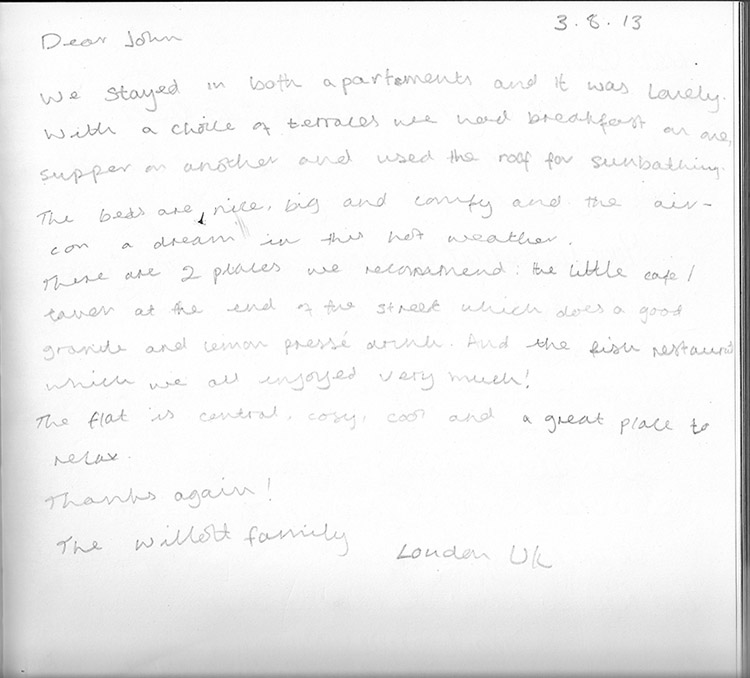 3.8.13
Dear John
We stayed in both apartements and it was lovely.
With a choice of terraces we had breakfast on one,
supper on another and used the roof for sunbathing.
The beds are nice, big and comfy and the air-
con a dream in this hot weather.
There are 2 places we recommend: the little cafe/
taver at the end of the street which does a good
granite and lemon pressé drink. And the fish restaurant
which we all enjoyed very much!
The flat is central, cosy, cool and a great place to
relax.
Thanks again!
The family London UK